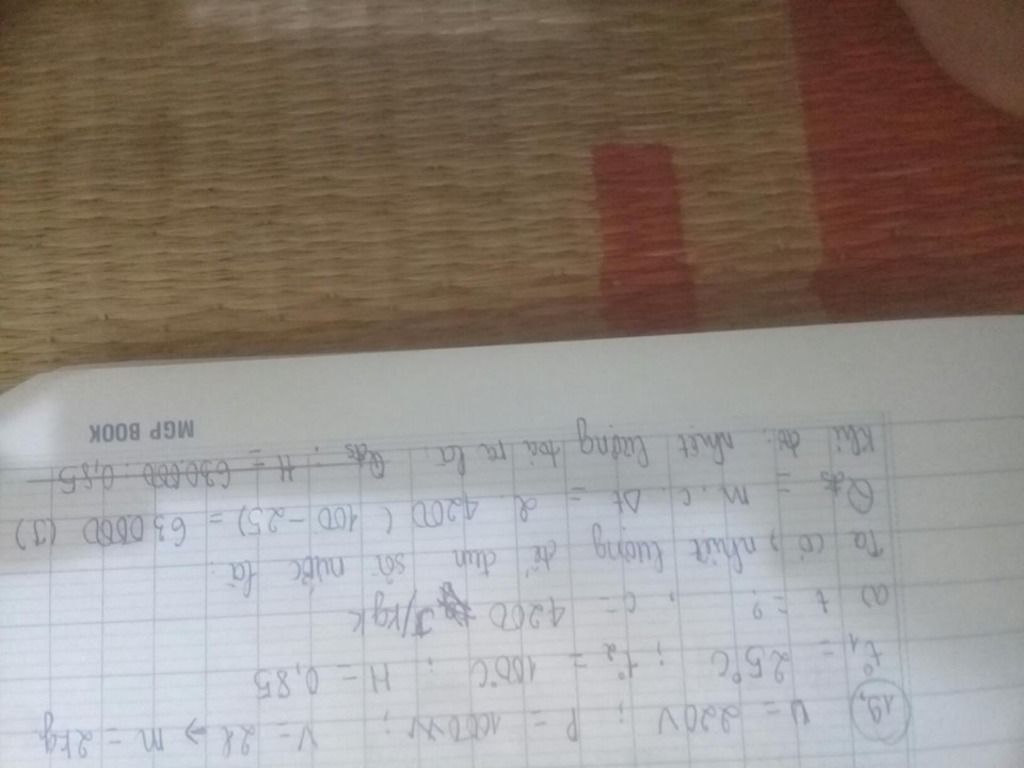 19, U = 220V ; P = 1000W ; V = 2l → m = 2kg
t°1 = 25°C ; t°2 = 100°C ; H = 0,85
a) t = ? , c = 4200 J/kgk
Ta có, nhiệt lượng để đun sôi nước là:
= m . c . Δt = 2. 4200 ( 100 - 25) = 630000 (J)
Khi đó: nhiệt lượng toả ra là: : H = 630000 : 0,85
MGP BOOK